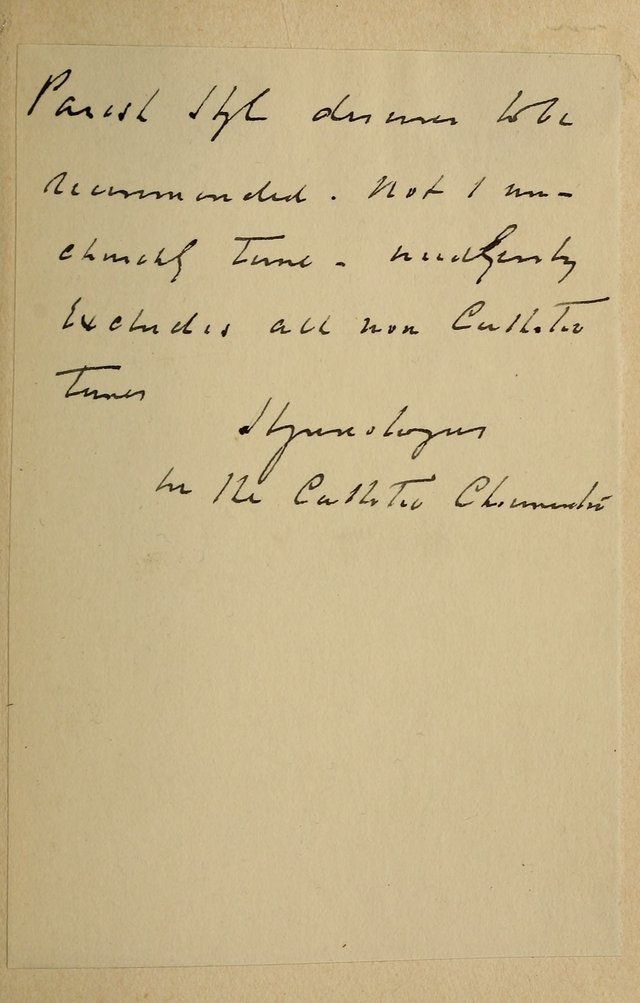 Parish Hyl deserves to be
recommended. Not 1 un-
churchly tune - 
Excludes all non Catholic
tunes
Hymnologus
in the Catholic Choirmaster